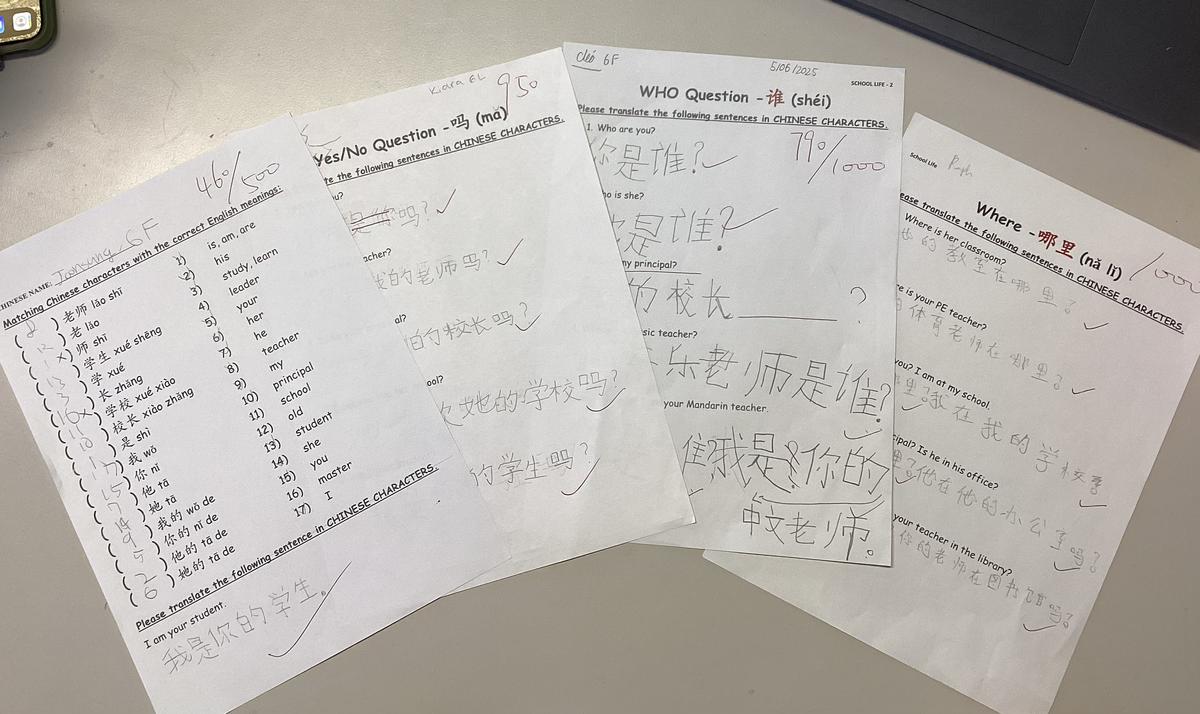 460/500
CHINESE NAME: Joonsung 6F
Matching Chinese characters with the correct English meanings:
( 8 ) 老师 lǎo shī
( 12 ) 老 lǎo
师 shī
学生 xué shēng
学 xué
长 zhǎng
学校 xué xiào
校长 xiào zhǎng
是 shì
我 wǒ
你 nǐ
他 tā
她 tā
我的 wǒ de
你的 nǐ de
他的 tā de
她的 tā de
1) is, am, are
2) his
3) study, learn
4) leader
5) your
6) her
7) he
8) teacher
9) my
10) principal
11) school
12) old
13) student
14) she
15) you
16) master
17) I
Please translate the following sentence in CHINESE CHARACTERS.
I am your student.
我是你的学生。
Kiara 6L
950
Yes/No Question - 吗 (mǎ)
te the following sentences in CHINESE CHARACTERS.
吗?
acher?
我的老师吗?
al?
的校长吗?
ool?
她的学校吗?
的学生吗?
Cleo 6F
5/06/2025
SCHOOL LIFE - 2
WHO Question - 谁 (shéi)
Please translate the following sentences in CHINESE CHARACTERS.
790/1000
1. Who are you?
你是谁?
ho is she?
是谁?
my principal?
的校长 ?
sic teacher?
乐老师是谁?
your Mandarin teacher.
谁?我是你的
中文老师。
School Life
Where - 哪里 (nǎ lǐ)
ease translate the following sentences in CHINESE CHARACTERS.
/1000
Where is her classroom?
她的教室在哪里?
re is your PE teacher?
的体育老师在哪里?
you? I am at my school.
里?我在我的学校
cipal? Is he in his office?
里?他在他的办公室吗?
your teacher in the library?
你的老师在图书馆吗?